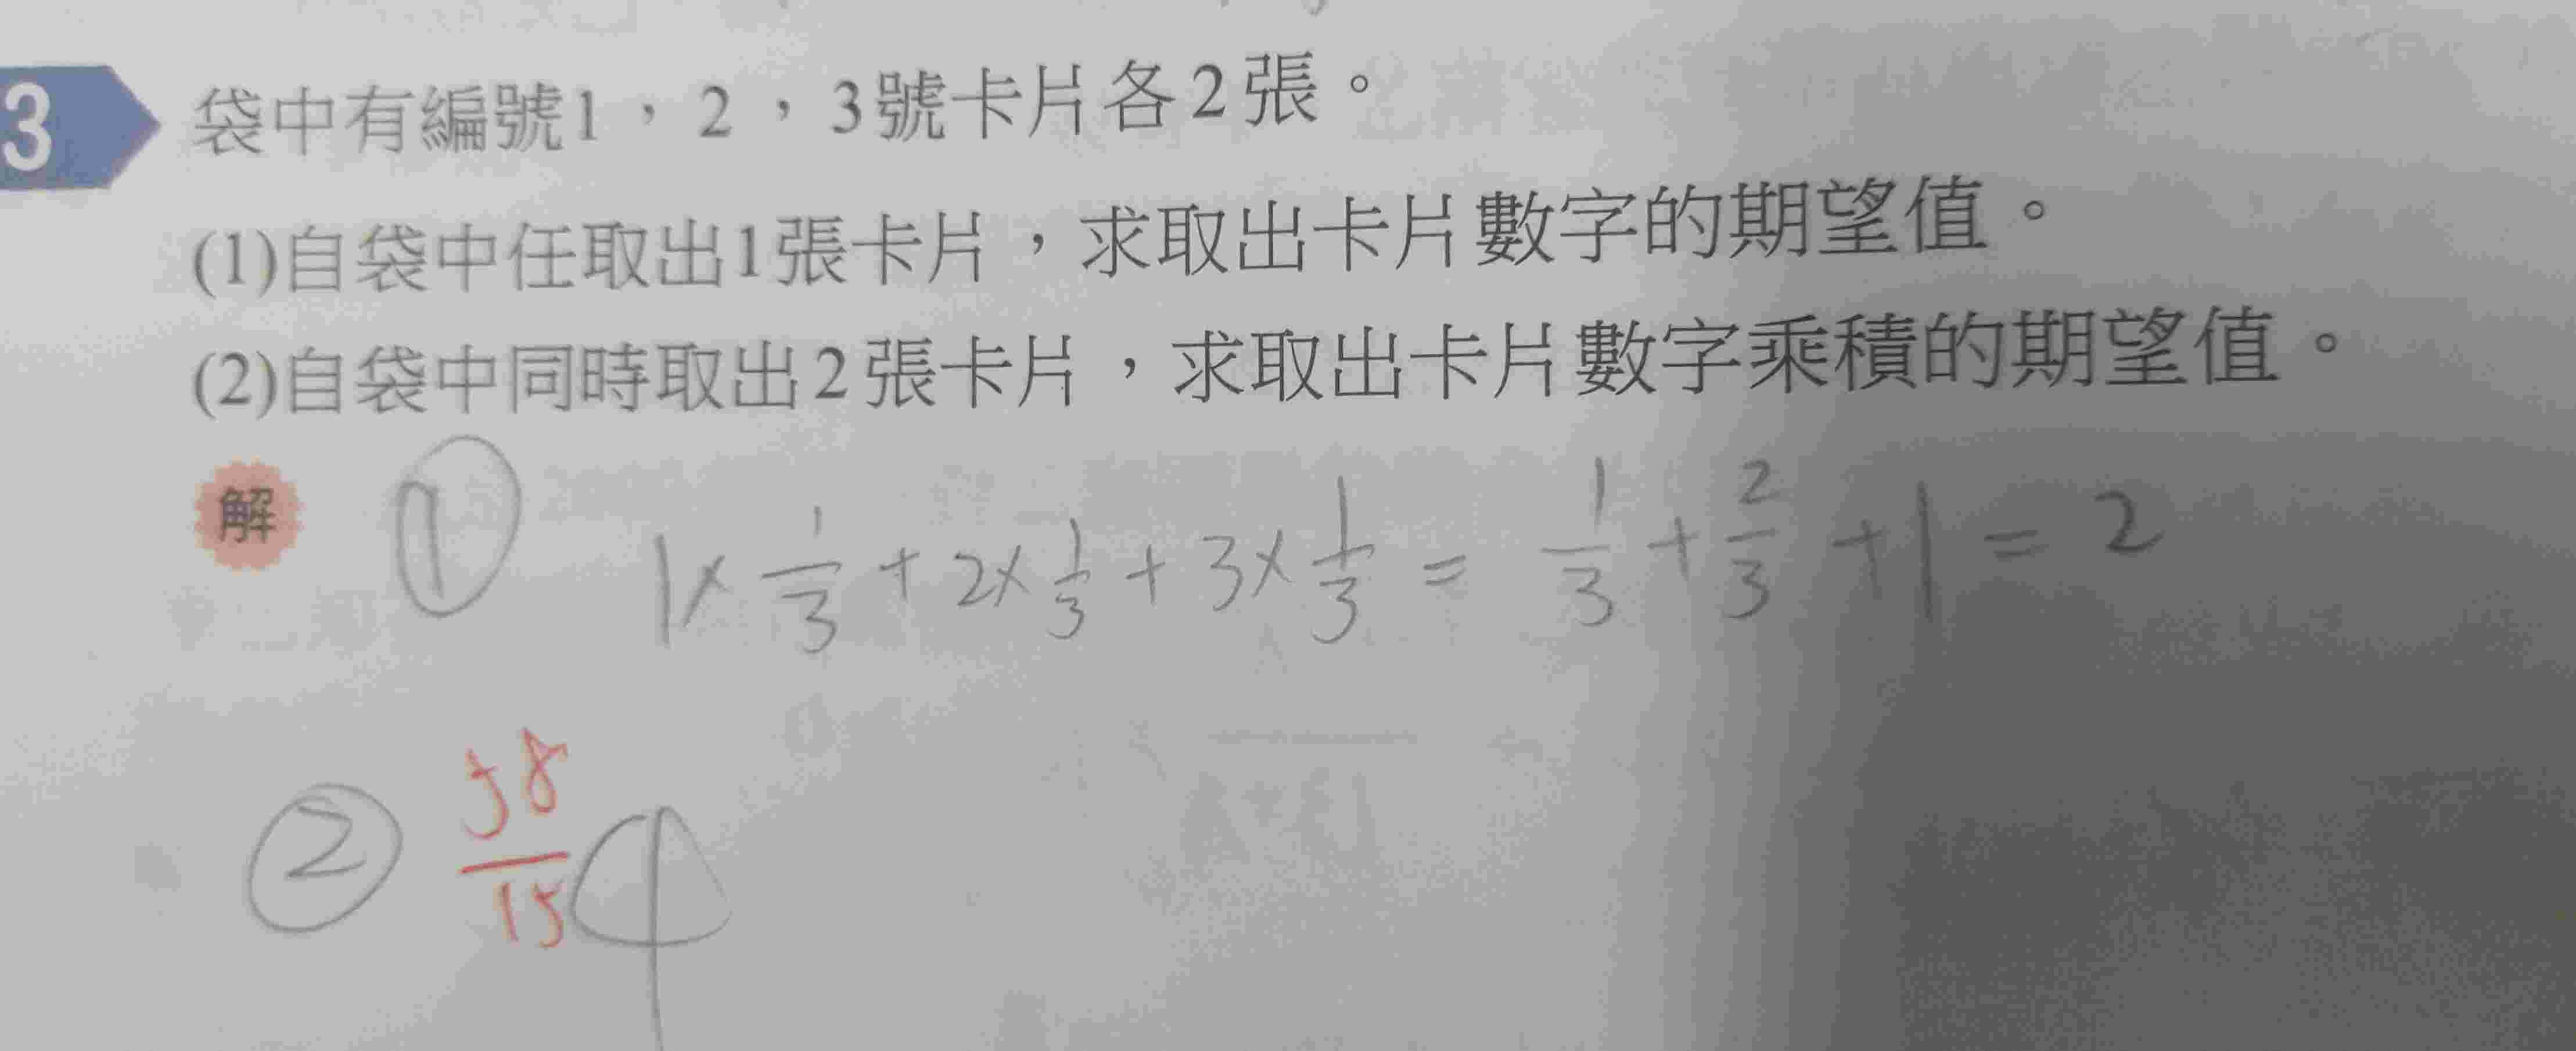 3 袋中有編號1,2,3號卡片各2張。
(1)自袋中任取出1張卡片,求取出卡片數字的期望值。
(2)自袋中同時取出2張卡片,求取出卡片數字乘積的期望值。
解 ① 1×1/3+2×1/3+3×1/3=1/3+2/3+1=2
② 58/15